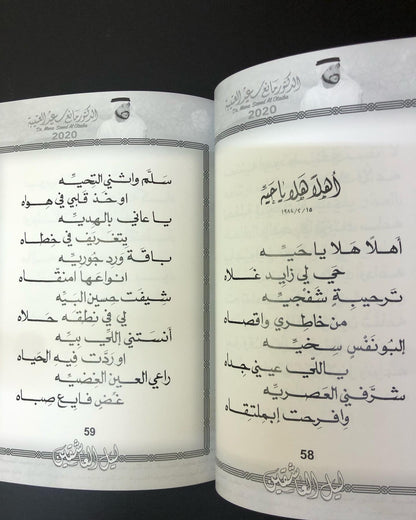 الدكتور مانع سعيد العتيبة
Dr. Mana Saeed Al Otaiba
2020
أهلا هلا يا حيّه
١٩٨٤/٢/١٥
أهلا هلا يا حيّه
حيّ لي زايد غلاه
ترحيبةٍ شفجيّه
من خاطري واقصاه
البو نفسٍ سخيّه
يا للّي عيني جداه
شرّفني العصريّه
وافرحت ابملتقاه
58
ليل العاشقين
الدكتور مانع سعيد العتيبة
Dr. Mana Saeed Al Otaiba
2020
سلّم واثني التحيّه
او خذ قلبي في هواه
يا عاني بالهديّه
يتغريف في خطاه
باقة ورد جوريّه
انواعها امنقاه
شيفت حسين البيّه
لي في نطقه حلاه
أنستني اللي بيّه
او ردّت فيه الحياه
راعي العين الغضيّه
غضٍ فايع صباه
59
ليل العاشقين